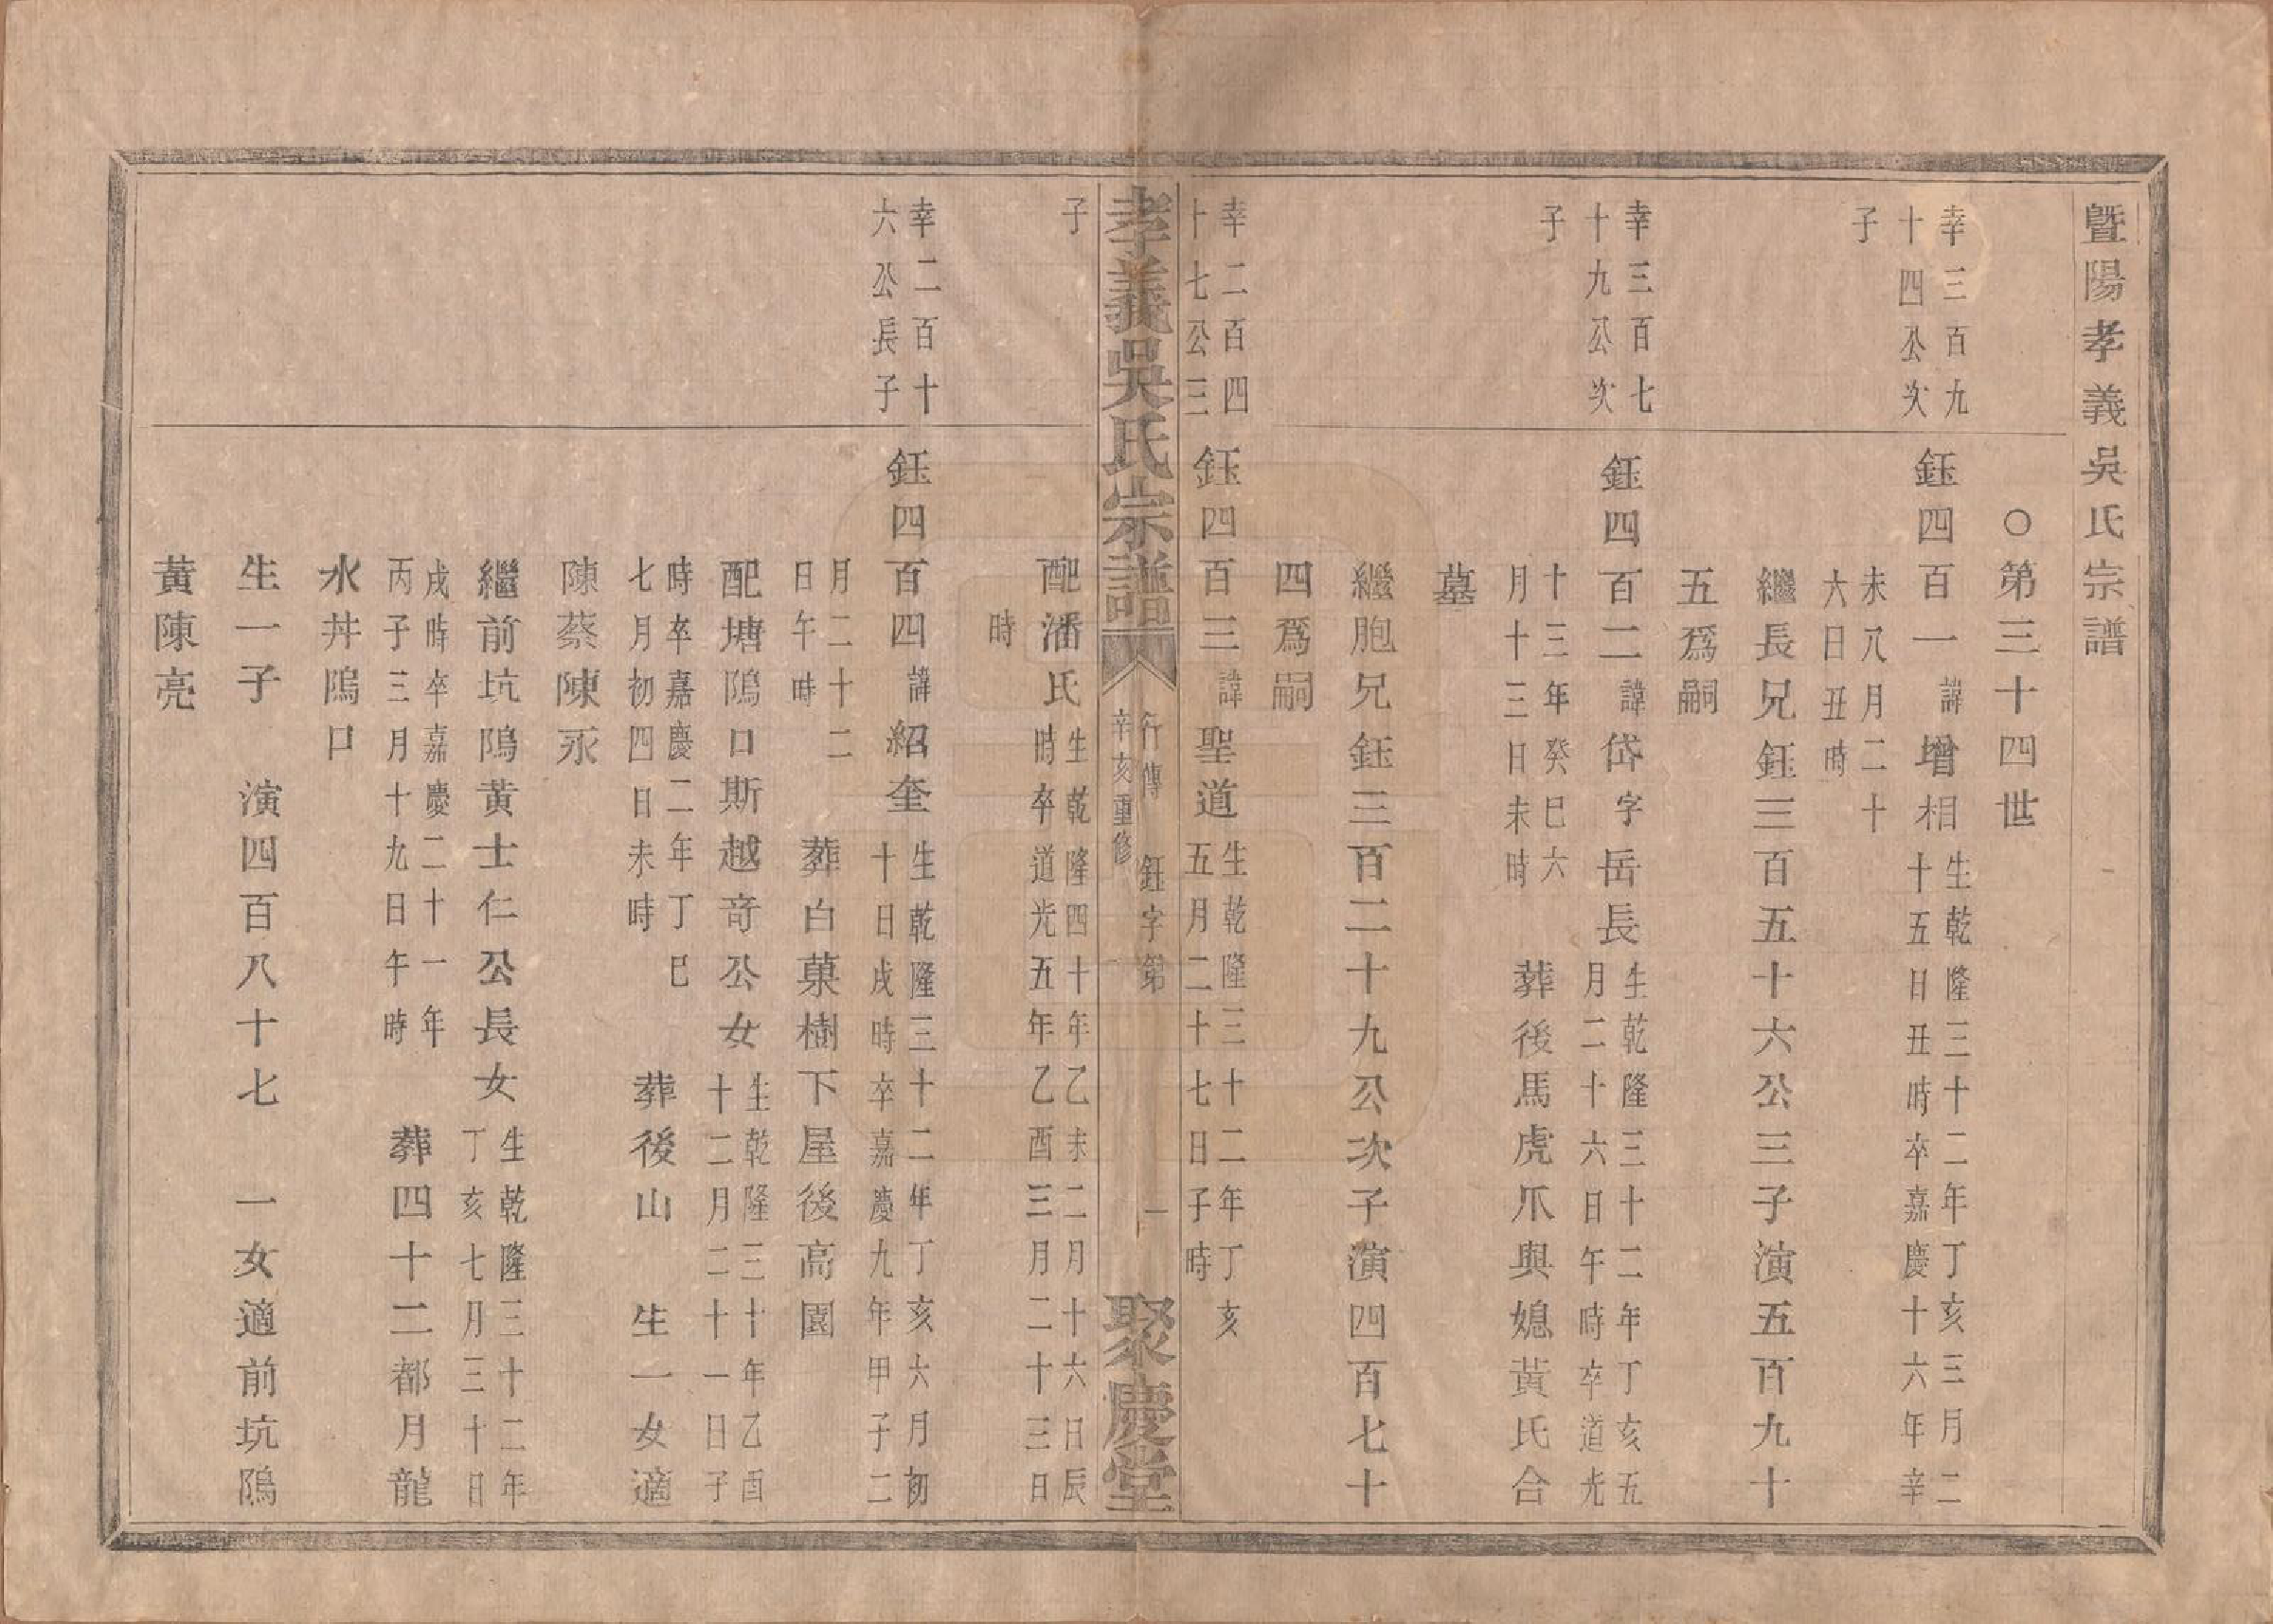 暨陽孝義吳氏宗譜
○第三十四世
幸三百九
十四公次
子
鈺四百一諱增相
生乾隆三十二年丁亥三月二
十五日丑時卒嘉慶十六年辛
未八月二十
六日丑時
繼長兄鈺三百五十六公三子演五百九十
五爲嗣
幸三百七
十九公次
子
鈺四百二諱岱字岳長
生乾隆三十二年丁亥五
月二十六日午時卒道光
十三年癸巳六
月十三日未時
葬後馬虎爪與媳黃氏合
墓
繼胞兄鈺三百二十九公次子演四百七十
四爲嗣
幸二百四
十七公三
子
鈺四百三諱聖道
生乾隆三十二年丁亥
五月二十七日子時
孝義吳氏宗譜
行傳 鈺字第 一
辛亥重修
聚慶堂
配潘氏
生乾隆四十年乙未二月十六日辰
時卒道光五年乙酉三月二十三日
時
幸二百十
六公長子
鈺四百四諱紹奎
生乾隆三十二年丁亥六月初
十日戌時卒嘉慶九年甲子二
月二十二
日午時
葬白菓樹下屋後高園
配塘隖口斯越奇公女
生乾隆三十年乙酉
十二月二十一日子
時卒嘉慶二年丁巳
七月初四日未時
葬後山 生一女適
陳蔡陳永
繼前坑隖黃士仁公長女
生乾隆三十二年
丁亥七月三十日
戌時卒嘉慶二十一年
丙子三月十九日午時
葬四十二都月龍
水井隖口
生一子 演四百八十七 一女適前坑隖
黃陳亮